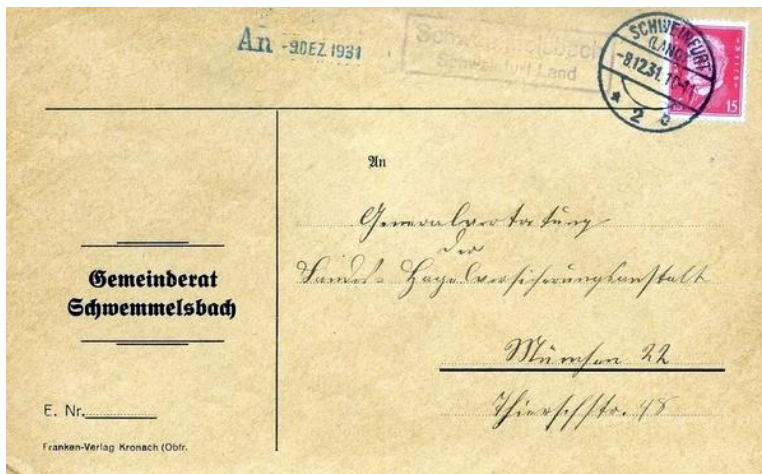 An -9.DEZ.1931
Schwemmelsbach
Schweinfurt Land
SCHWEINFURT
(LAND)
-8.12.31.10-11
* 2 b
15
An
Generalvertretung
der
Landes-Hagelversicherungsanstalt
München 22
Thierschstr. 48
Gemeinderat
Schwemmelsbach
E. Nr.
Franken-Verlag Kronach (Obfr.